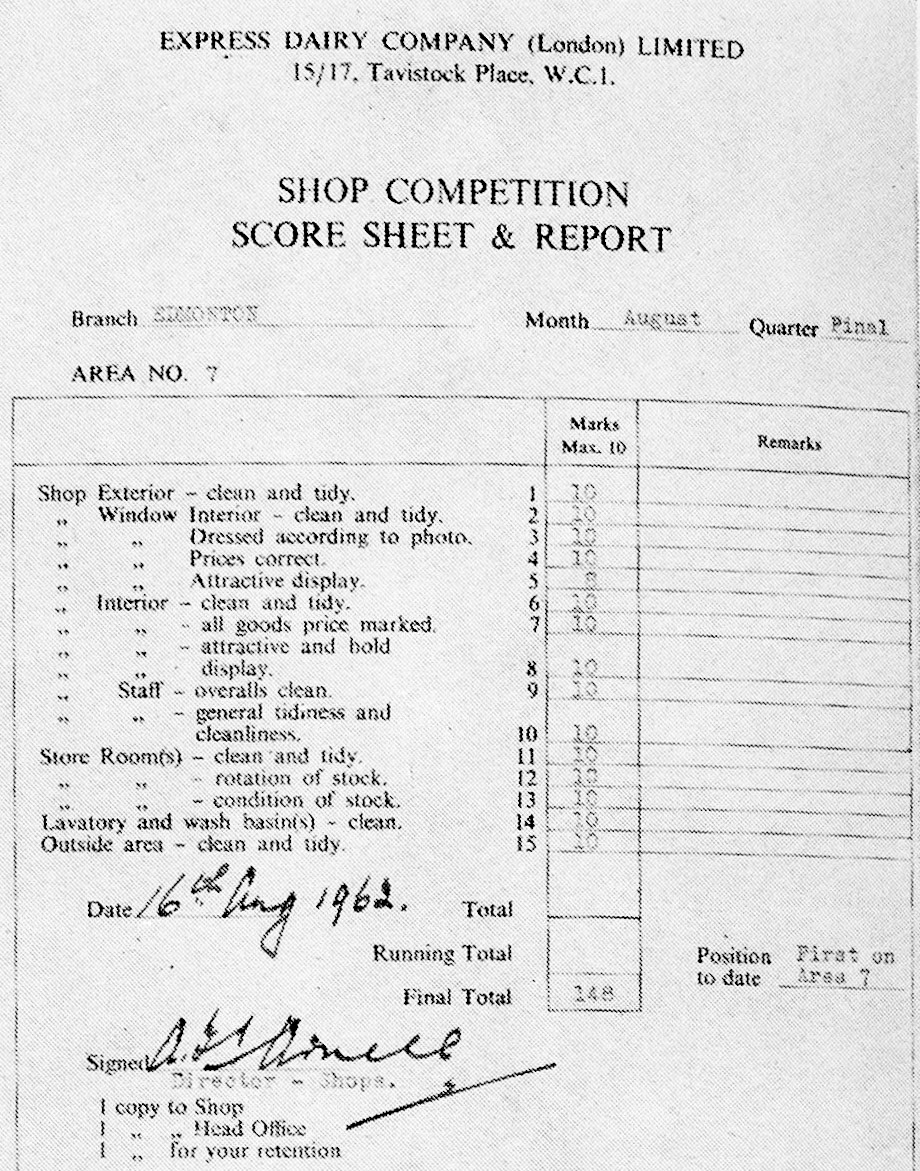 EXPRESS DAIRY COMPANY (London) LIMITED
15/17, Tavistock Place, W.C.1.
SHOP COMPETITION
SCORE SHEET & REPORT
Branch EDMONTON Month August Quarter Final
AREA NO. 7
Marks Max. 10 Remarks
Shop Exterior – clean and tidy. 1 10
„ Window Interior – clean and tidy. 2 10
„ „ Dressed according to photo. 3 10
„ „ Prices correct. 4 10
„ „ Attractive display. 5 8
„ Interior – clean and tidy. 6 10
„ „ – all goods price marked. 7 10
„ „ – attractive and bold
„ „ display. 8 10
„ Staff – overalls clean. 9 10
„ „ – general tidiness and
cleanliness. 10 10
Store Room(s) – clean and tidy. 11 10
„ „ – rotation of stock. 12 10
„ „ – condition of stock. 13 10
Lavatory and wash basin(s) – clean. 14 10
Outside area – clean and tidy. 15 10
Date 16th Aug 1962. Total
Running Total Position First on
to date Area 7
Final Total 148
Signed
Director - Shops.
1 copy to Shop
1 „ „ Head Office
1 „ for your retention